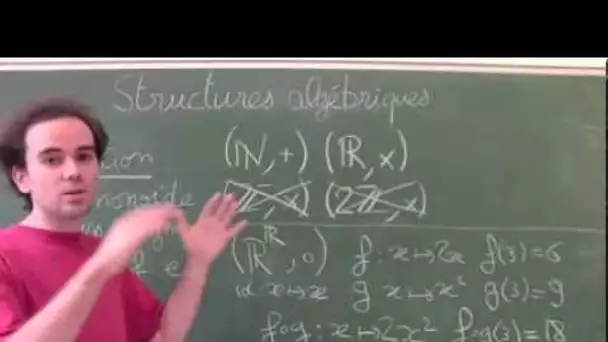 Structures algébriques
(ℕ,+) (ℝ,×)
monoide (ℤ,×) (2ℤ,×)
(ℝ^ℝ,∘) f : x↦2x f(3)=6
id x↦x g x↦x² g(3)=9
f∘g : x↦2x² f∘g(3)=18